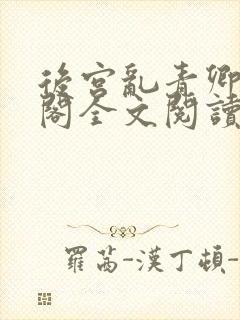 後宮亂青卿
閣全文閱讀
羅茜-漢丁頓-